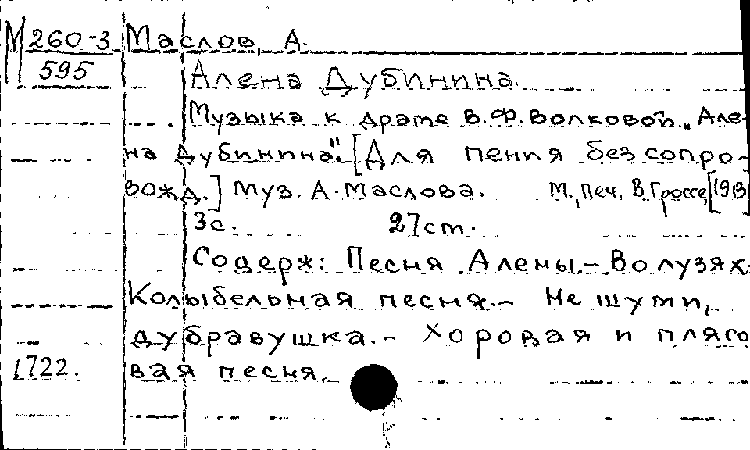 М 260-3 Маслов, А.
595 Алена Дубинина.
Музыка к драме В.Ф.Волковой „Але-
на Дубинина". [Для пения без сопро-
вожд.] Муз. А. Маслова. М., Печ. В. Гроссе, [19
3с. 27cm.
Содерж: Песня Алены.- Во лузях.
Колыбельная песня.- Не шуми,
дубравушка.- Хоровая и плясо
1722. вая песня.